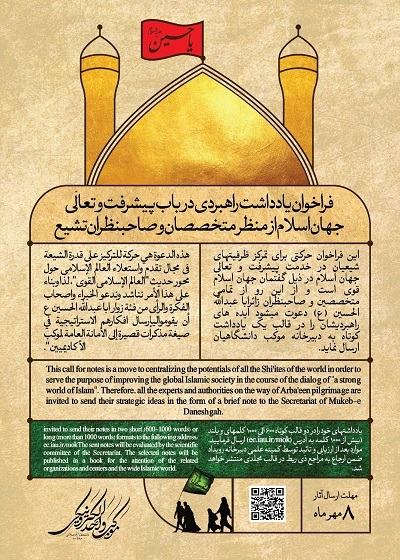 یا حسین
فراخوان یادداشت راهبردی در باب پیشرفت و تعالی
جهان اسلام از منظر متخصصان و صاحبنظران تشیع
این فراخوان حرکتی برای تمرکز ظرفیتهای
شیعیان در خدمت پیشرفت و تعالی
جهان اسلام در ذیل گفتمان جهان اسلام
قوی است و از این رو از تمامی
متخصصین و صاحبنظران زائر اباعبدالله
الحسین (ع) دعوت میشود ایده های
راهبردیشان را در قالب یک یادداشت
کوتاه به دبیرخانه موکب دانشگاهیان
ارسال نماید.
هذه الدعوة هي حركة للتركيز على قدرة الشيعة
في مجال تقدم واستعلاء العالم الإسلامي حول
محور حديث "العالم الإسلامي القوى". لذا وبناء
على هذا الأمر نناشد وندعو الخبراء واصحاب
الفكرة والرأى من فئة زوار ابا عبدالله الحسين ع
أن يقوموا بإرسال أفكارهم الاستراتيجية في
صيغة مذكرات قصيرة إلى الأمانة العامة لموكب
"الأكاديميين".
This call for notes is a move to centralizing the potentials of all the Shi'ites of the world in order to
serve the purpose of improving the global Islamic society in the course of the dialog of "a strong
world of Islam". Therefore, all the experts and authorities on the way of Arba'een pilgrimage are
invited to send their strategic ideas in the form of a brief note to the Secretariat of Mukeb-e
Daneshgah.
invited to send their notes in two short (600-1000 words) or
long (more than 1000 words) formats to the following address:
ec.iau.ir/mok The sent notes will be evaluated by the scientific
committee of the Secretariat. The selected notes will be
published in a book for the attention of the related
organizations and centers and the wide Islamic world.
یادداشتهای خود را در دو قالب کوتاه ۶۰۰ الی ۱۰۰۰ کلمهای و بلند
(بیش از ۱۰۰۰ کلمه) به آدرس (ec.iau.ir/mok) ارسال فرمایید.
موارد بعد از ارزیابی و تائید توسط کمیته علمی دبیرخانه رویداد
ضمن ارجاع به مراجع ذی ربط در قالب مجلدی منتشر خواهد
شد.
مهلت ارسال آثار
۸ مهر ماه